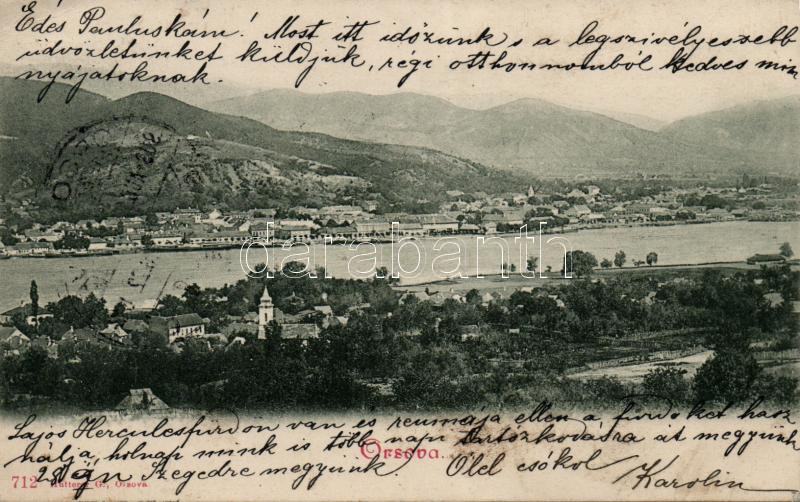 Édes Pauluskám! Most itt időzünk s a legszivélyesebb
üdvözletünket küldjük, régi otthonnomból kedves min
nyájatoknak.
darabanth
Lajos Herculesfürdon van és reumája ellen a fürdoket hasz
nálja, holnap mink is több napi tartozkodásra at megyünk
28 án Szegedre megyünk. Ölel csókol Karolin
712 Hutterer G., Orsova
Orsova